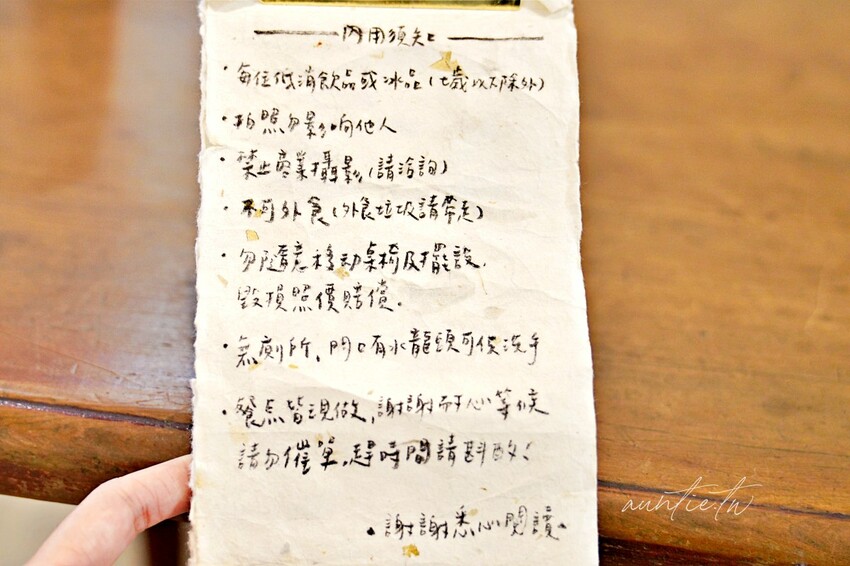 內用須知
・每位低消飲品或冰品(七歲以下除外)
・拍照勿影响他人
・禁止商業攝影(請洽詢)
・不可外食(外食垃圾請帶走)
・勿隨意移动桌椅及擺設.
毀損照價賠償。
・無廁所、門口有水龍頭可供洗手
・餐点皆現做,謝謝耐心等候
請勿催單,趕時間請斟酌!
・謝謝悉心閱讀・
auntie.tw